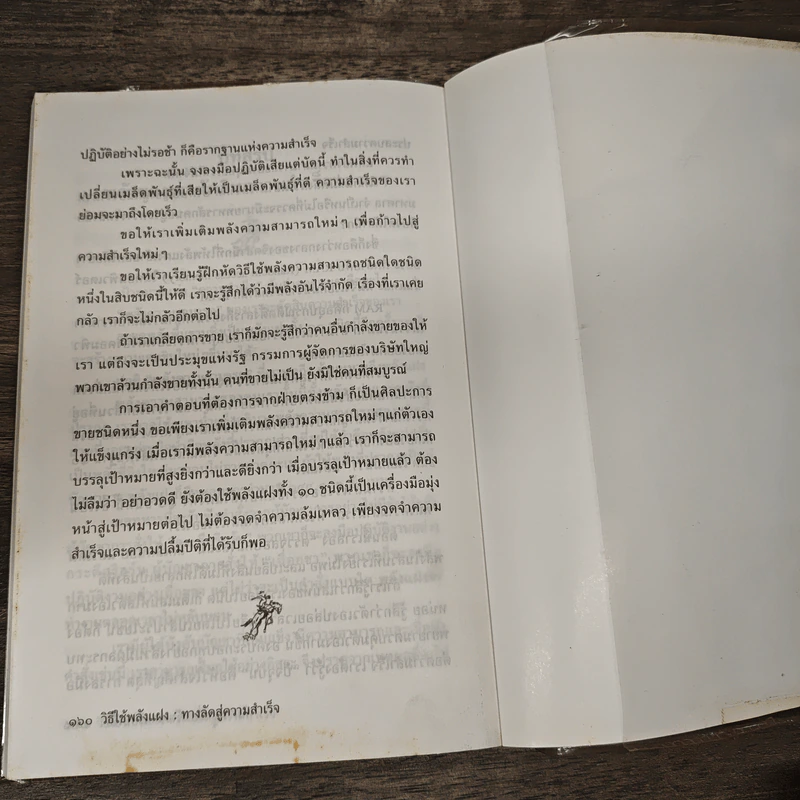 ปฏิบัติอย่างไม่รอช้า ก็คือรากฐานแห่งความสำเร็จ
เพราะฉะนั้น จงลงมือปฏิบัติเสียแต่บัดนี้ ทำในสิ่งที่ควรทำ
เปลี่ยนเมล็ดพันธุ์ที่เสียให้เป็นเมล็ดพันธุ์ที่ดี ความสำเร็จของเรา
ย่อมจะมาถึงโดยเร็ว
ขอให้เราเพิ่มเติมพลังความสามารถใหม่ๆ เพื่อก้าวไปสู่
ความสำเร็จใหม่ๆ
ขอให้เราเรียนรู้ฝึกหัดวิธีใช้พลังความสามารถชนิดใดชนิด
หนึ่งในสิบชนิดนี้ให้ดี เราจะรู้สึกได้ว่ามีพลังอันไร้จำกัด เรื่องที่เราเคย
กลัว เราก็จะไม่กลัวอีกต่อไป
ถ้าเราเกลียดการขาย เราก็มักจะรู้สึกว่าคนอื่นกำลังขายของให้
เรา แต่ถึงจะเป็นประมุขแห่งรัฐ กรรมการผู้จัดการของบริษัทใหญ่
พวกเขาล้วนกำลังขายทั้งนั้น คนที่ขายไม่เป็น ยังมิใช่คนที่สมบูรณ์
การเอาคำตอบที่ต้องการจากฝ่ายตรงข้าม ก็เป็นศิลปะการ
ขายชนิดหนึ่ง ขอเพียงเราเพิ่มเติมพลังความสามารถใหม่ๆแก่ตัวเอง
ให้แข็งแกร่ง เมื่อเรามีพลังความสามารถใหม่ๆแล้ว เราก็จะสามารถ
บรรลุเป้าหมายที่สูงยิ่งกว่าและดียิ่งกว่า เมื่อบรรลุเป้าหมายแล้ว ต้อง
ไม่ลืมว่า อย่าอวดดี ยังต้องใช้พลังแฝงทั้ง ๑๐ ชนิดนี้เป็นเครื่องมือมุ่ง
หน้าสู่เป้าหมายต่อไป ไม่ต้องจดจำความล้มเหลว เพียงจดจำความ
สำเร็จและความปลื้มปีติที่ได้รับก็พอ
๑๖๐ วิธีใช้พลังแฝง : ทางลัดสู่ความสำเร็จ